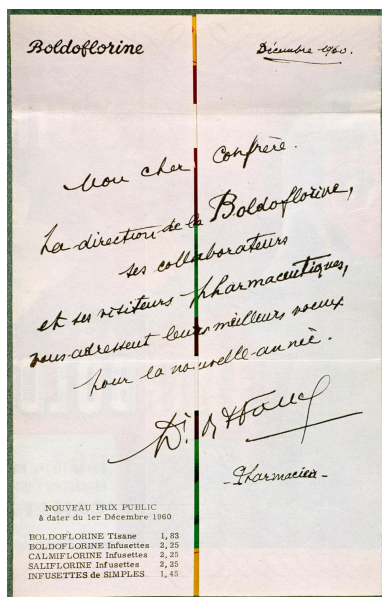 Boldoflorine
Décembre 1960.
Mon cher Confrère.
La direction de la Boldoflorine,
ses collaborateurs
et ses visiteurs pharmaceutiques,
vous adressent leurs meilleurs voeux
pour la nouvelle année.
Dr
Pharmacien
NOUVEAU PRIX PUBLIC
à dater du 1er Décembre 1960
BOLDOFLORINE Tisane 1,83
BOLDOFLORINE Infusettes 2,25
CALMIFLORINE Infusettes 2,25
SALIFLORINE Infusettes 2,25
INFUSETTES de SIMPLES 1,45